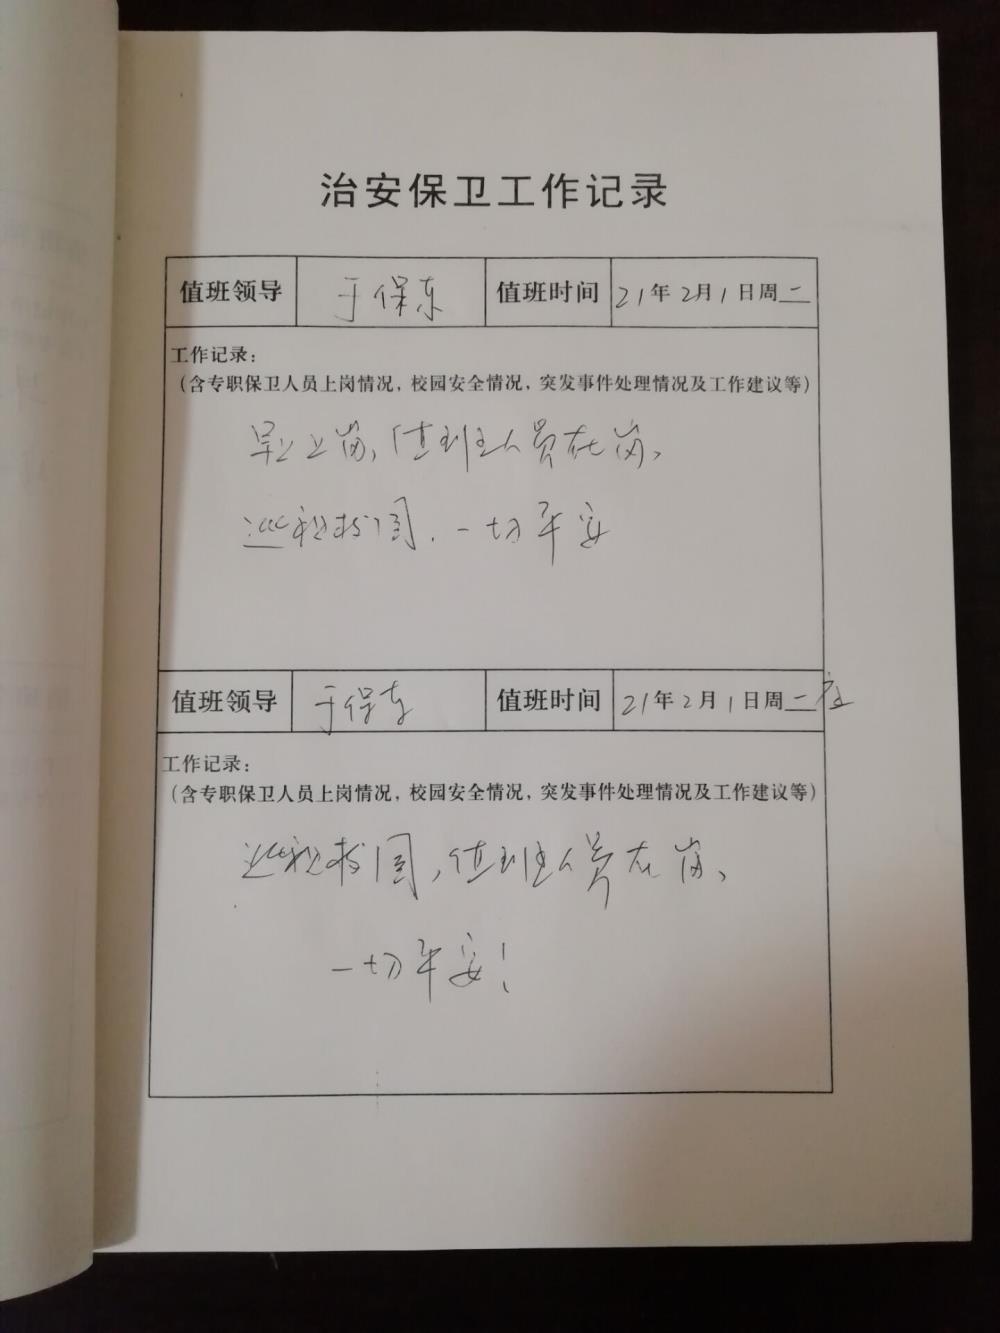 治安保卫工作记录
值班领导 于保东 值班时间 21年2月1日周二
工作记录:
(含专职保卫人员上岗情况,校园安全情况,突发事件处理情况及工作建议等)
早上岗,值班人员在岗、
巡视校园.一切平安
值班领导 于保东 值班时间 21年2月1日周二夜
工作记录:
(含专职保卫人员上岗情况,校园安全情况,突发事件处理情况及工作建议等)
巡视校园,值班人员在岗、
一切平安!